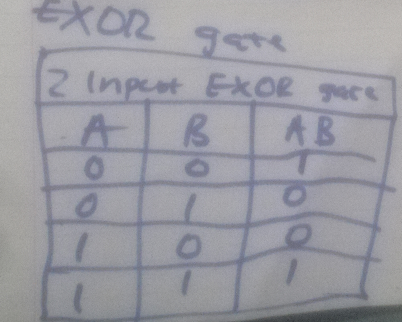 EXOR gate
2 Input EXOR gate
A B AB
0 0 1
0 1 0
1 0 0
1 1 1